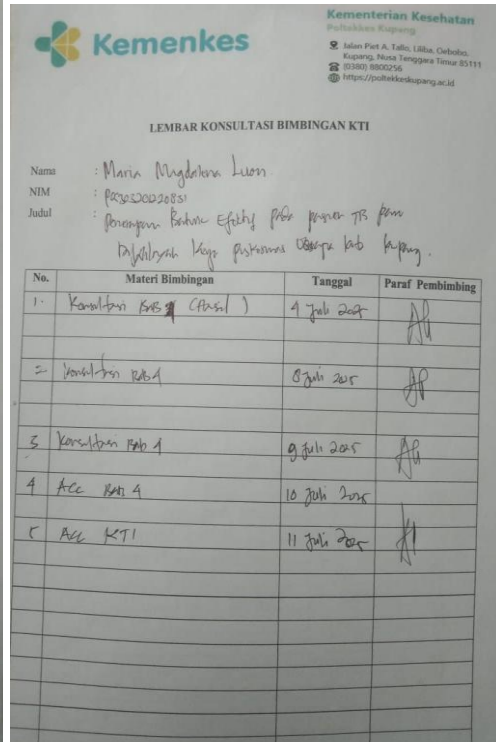 Kemenkes
Kementerian Kesehatan
Poltekkes Kupang
Jalan Piet A. Tallo, Liliba, Oebobo,
Kupang, Nusa Tenggara Timur 85111
(0380) 8800256
https://poltekkeskupang.ac.id
LEMBAR KONSULTASI BIMBINGAN KTI
Nama : Maria Magdalena Luon
NIM :
Judul : Penerapan Batuk Efektif pada pasien TB paru
Kerja puskesmas kab kupang.
No. Materi Bimbingan Tanggal Paraf Pembimbing
1. Konsultasi BAB 4 (Hasil) 4 Juli 2025
2 Konsultasi Bab 4 8 Juli 2025
3 Konsultasi Bab 4 9 Juli 2025
4 Acc Bab 4 10 Juli 2025
5 Acc KTI 11 Juli 2025